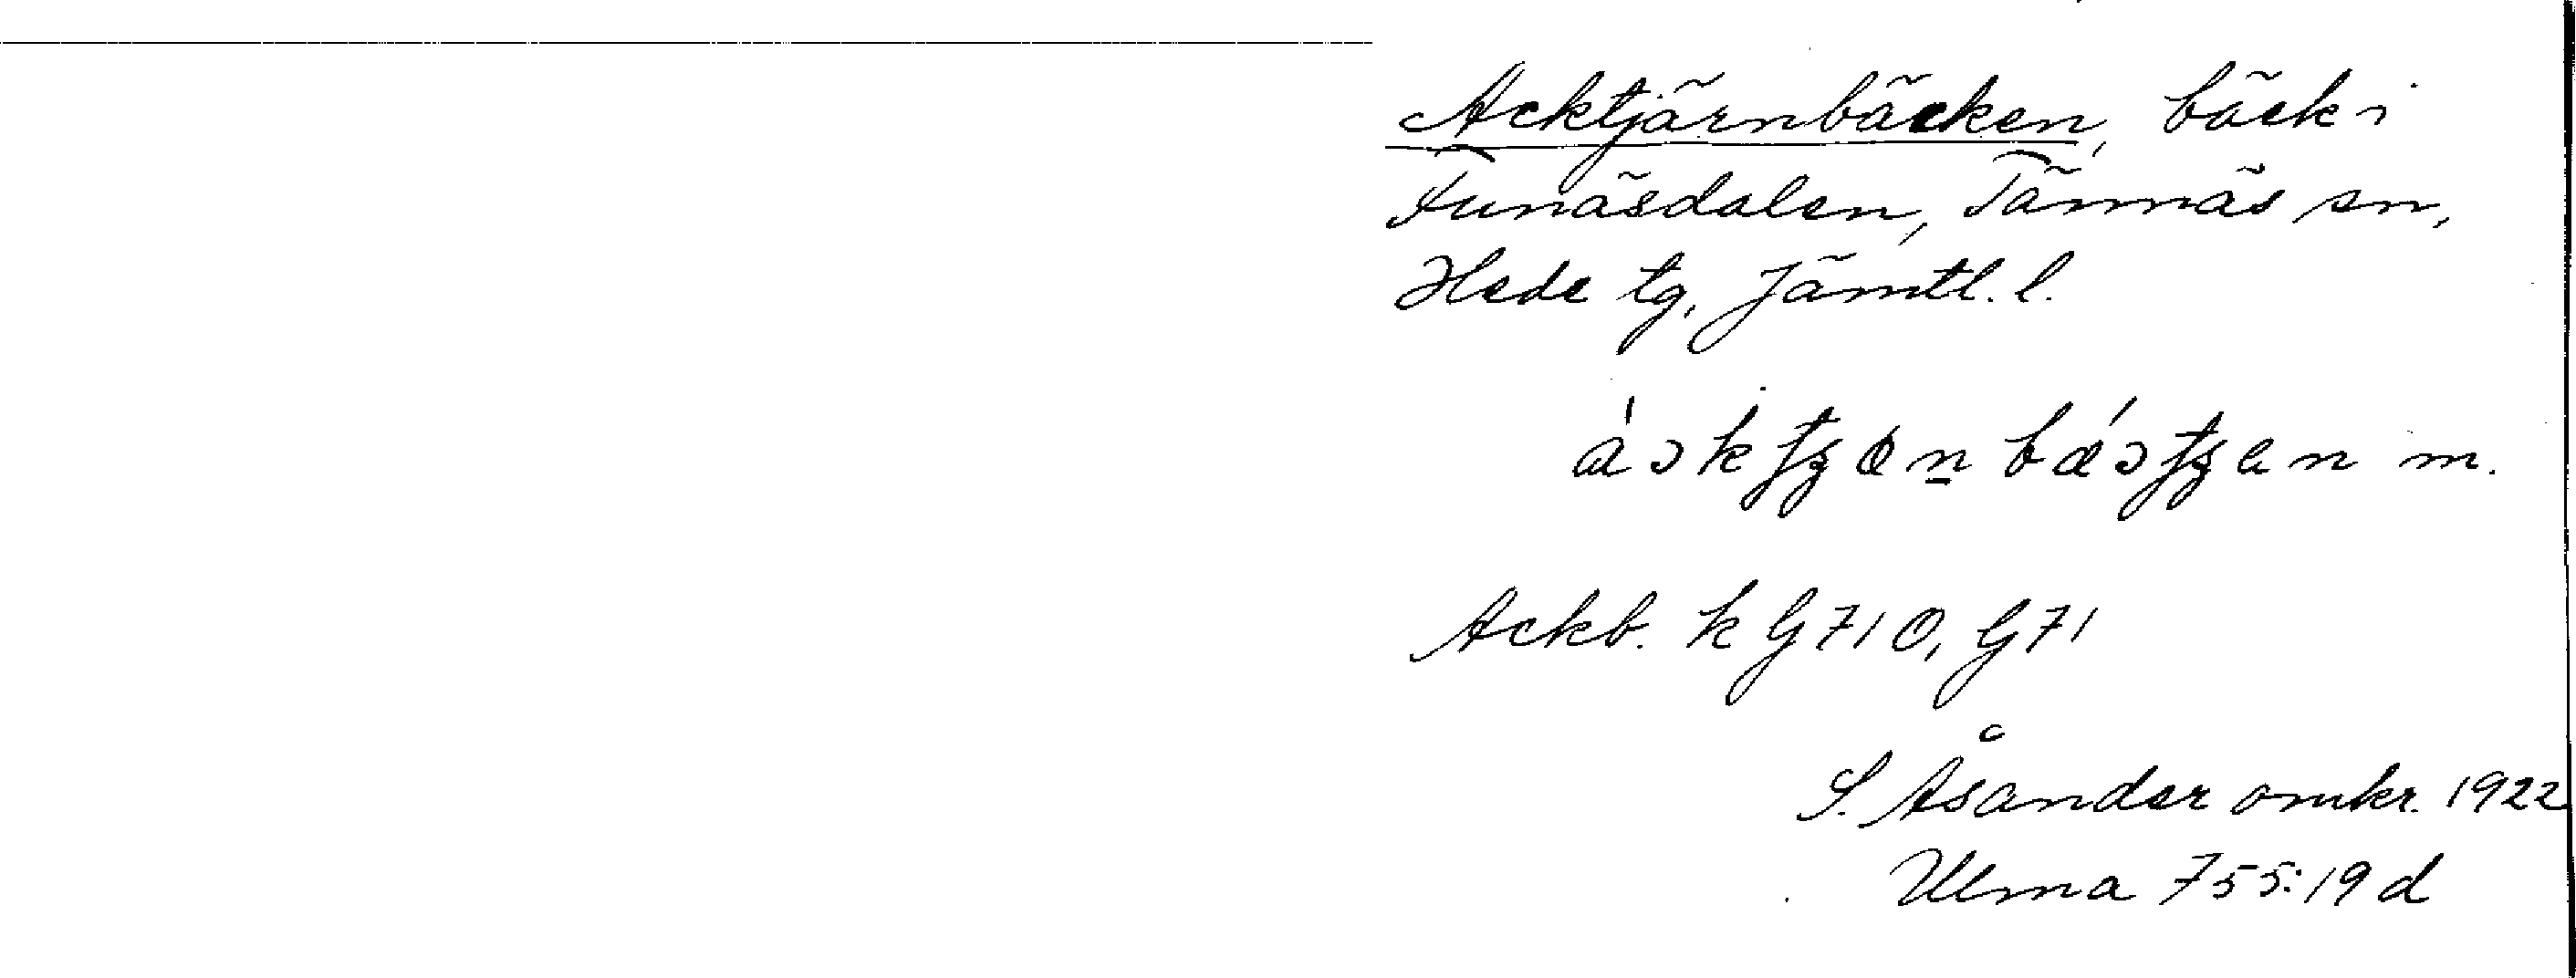 Acktjärnbäcken, bäck i
Funäsdalen, Tännäs sn,
Hede tg, Jämtl. l.
m.
Ackb. k G 71 O, G 71
S. Åsander omkr. 1922
Ulma 755:19 d